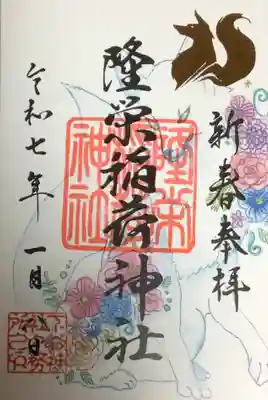 新春奉拝
隆栄稲荷神社
隆栄
神社
令和七年 一月
日